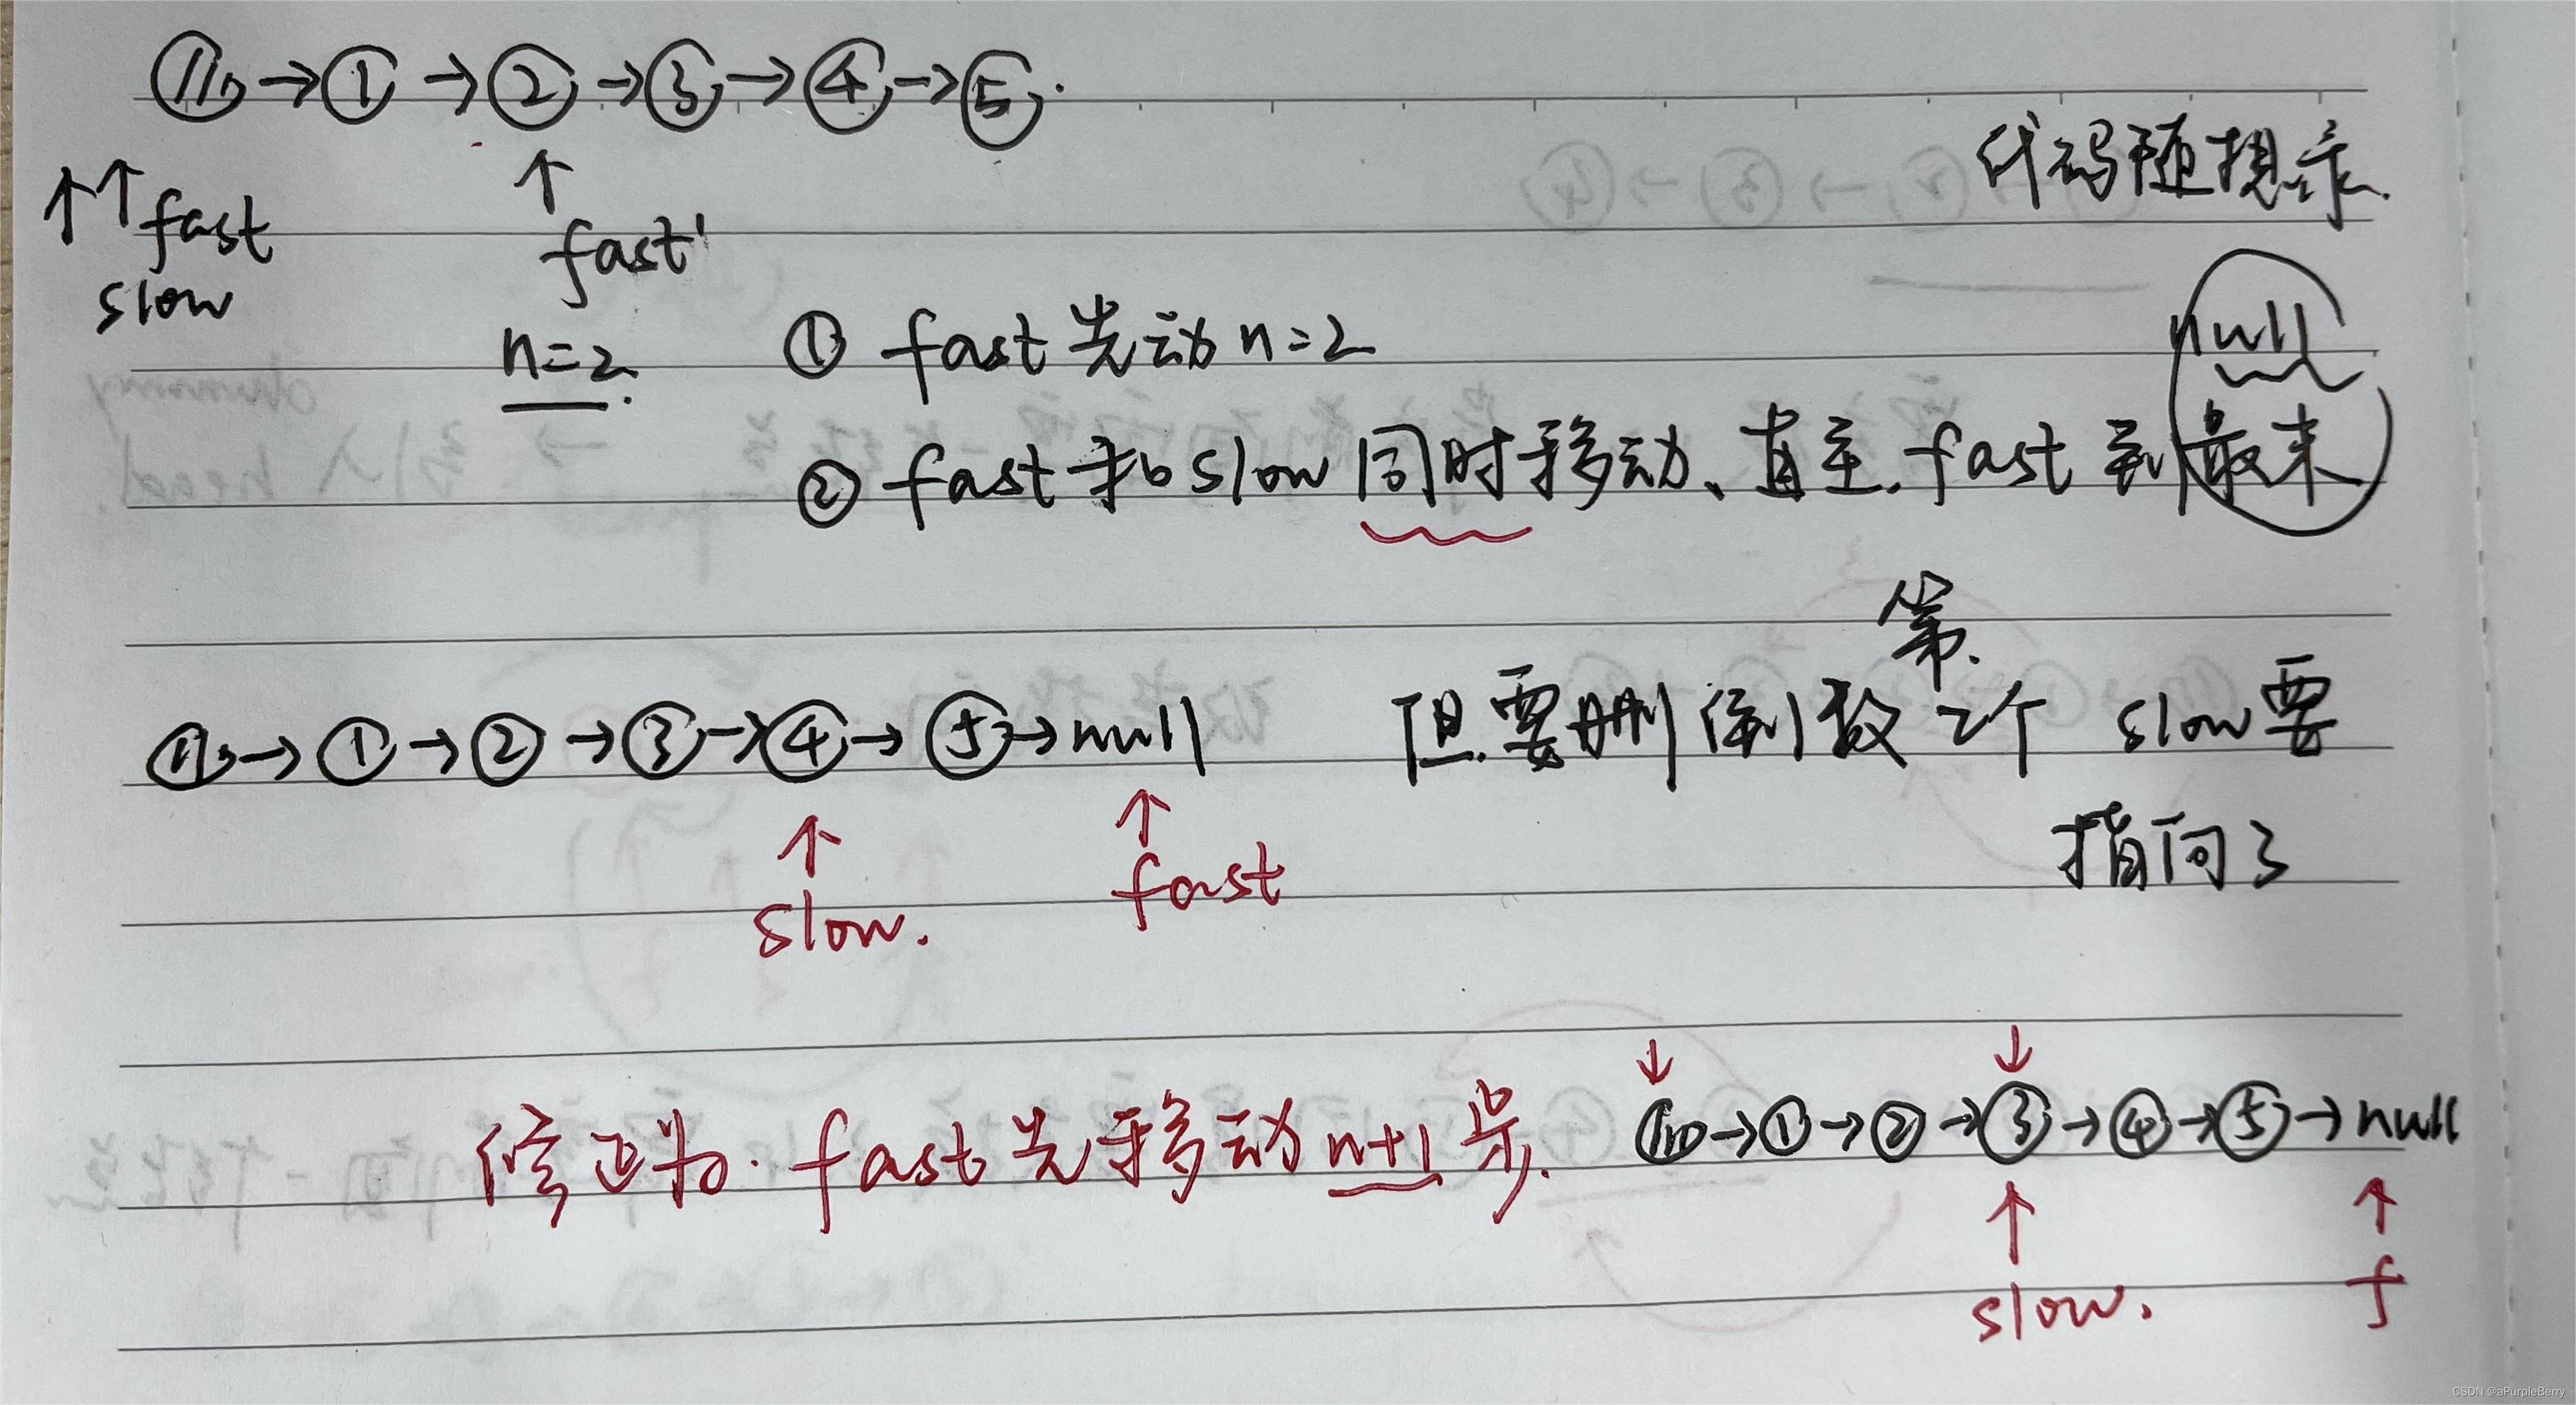 → ① → ② → ③ → ④ → ⑤
代码随想录
↑ ↑ fast ↑ fast'
slow
n=2 ① fast先动n=2 null
② fast和slow同时移动、直至fast到最末
第
→ ① → ② → ③ → ④ → ⑤ → null 但要删倒数2个 slow要
↑ ↑ 指向3
slow. fast
↓ ↓
修正为. fast先移动n+1步. → ① → ② → ③ → ④ → ⑤ → null
↑ ↑
slow. f
CSDN @aPurpleBerry